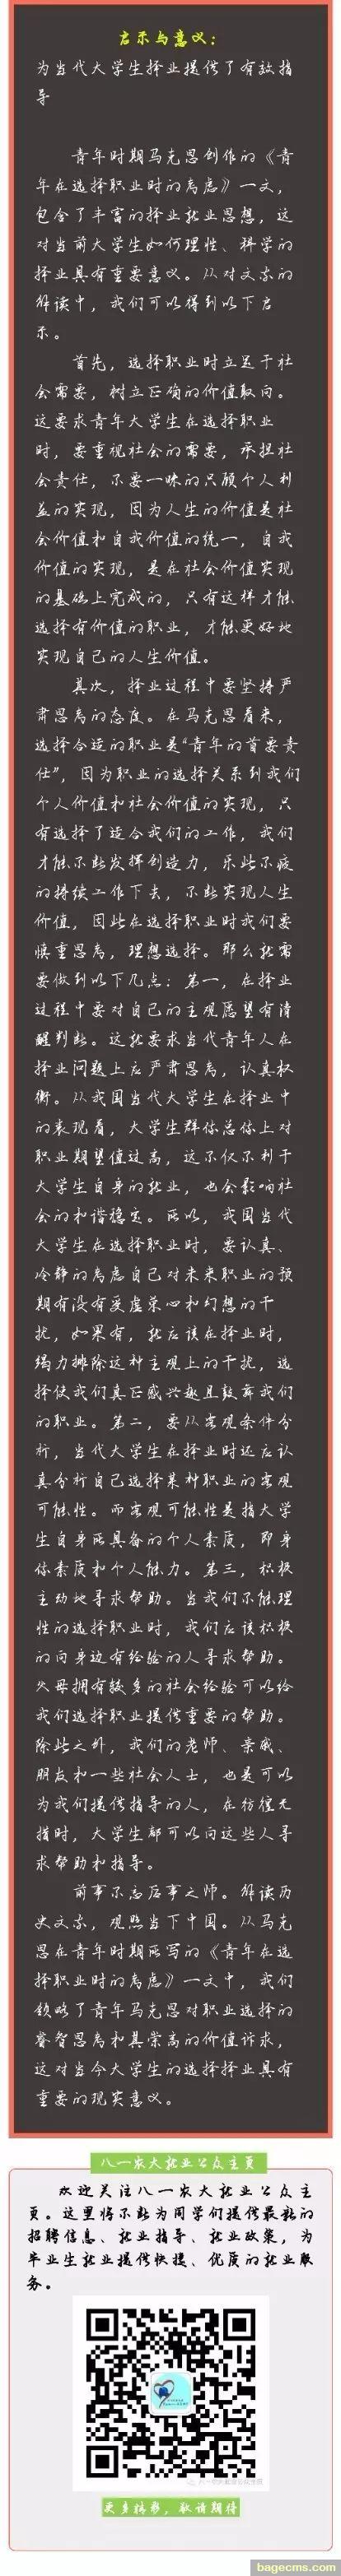 启示与意义：
为当代大学生择业提供了有效指
导
青年时期马克思创作的《青
年在选择职业时的考虑》一文，
包含了丰富的择业就业思想，这
对当前大学生如何理性、科学的
择业具有重要意义。从对文章的
解读中，我们可以得到以下启
示。
首先，选择职业时立足于社
会需要，树立正确的价值取向。
这要求青年大学生在选择职业
时，要重视社会的需要，承担社
会责任，不要一味的只顾个人利
益的实现，因为人生的价值是社
会价值和自我价值的统一，自我
价值的实现，是在社会价值实现
的基础上完成的，只有这样才能
选择有价值的职业，才能更好地
实现自己的人生价值。
其次，择业过程中要坚持严
肃思考的态度。在马克思看来，
选择合适的职业是“青年的首要责
任”，因为职业的选择关系到我们
个人价值和社会价值的实现，只
有选择了适合我们的工作，我们
才能不断发挥创造力，乐此不疲
的持续工作下去，不断实现人生
价值，因此在选择职业时我们要
慎重思考，理想选择。那么就需
要做到以下几点：第一，在择业
过程中要对自己的主观愿望有清
醒判断。这就要求当代青年人在
择业问题上应严肃思考，认真权
衡。从我国当代大学生在择业中
的表现看，大学生群体总体上对
职业期望值过高，这不仅不利于
大学生自身的就业，也会影响社
会的和谐稳定。所以，我国当代
大学生在选择职业时，要认真、
冷静的考虑自己对未来职业的预
期有没有受虚荣心和幻想的干
扰，如果有，就应该在择业时，
竭力排除这种主观上的干扰，选
择使我们真正感兴趣且鼓舞我们
的职业。第二，要从客观条件分
析，当代大学生在择业时还应认
真分析自己选择某种职业的客观
可能性。而客观可能性是指大学
生自身所具备的个人素质，即身
体素质和个人能力。第三，积极
主动地寻求帮助。当我们不能理
性的选择职业时，我们应该积极
的向身边有经验的人寻求帮助。
父母拥有较多的社会经验可以给
我们选择职业提供重要的帮助。
除此之外，我们的老师、亲戚、
朋友和一些社会人士，也是可以
为我们提供指导的人，在彷徨无
措时，大学生都可以向这些人寻
求帮助和指导。
前事不忘后事之师。解读历
史文章，观照当下中国。从马克
思在青年时期所写的《青年在选
择职业时的考虑》一文中，我们
领略了青年马克思对职业选择的
睿智思考和其崇高的价值诉求，
这对当今大学生的选择择业具有
重要的现实意义。
八一农大就业公众主页
欢迎关注八一农大就业公众主
页。这里将不断为同学们提供最新的
招聘信息、就业指导、就业政策，为
毕业生就业提供快捷、优质的就业服
务。
更多精彩，敬请期待
bagecms.com